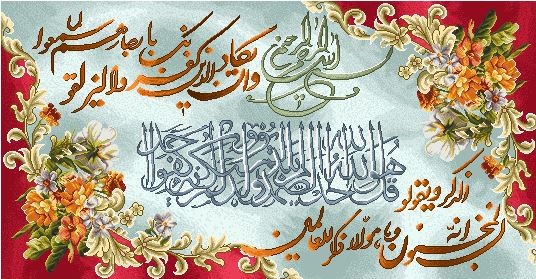 بسم الله الرحمن الرحيم
وان يكاد الذين كفروا ليزلقونك بابصارهم لما سمعوا
قل هو الله احد الله الصمد لم يلد ولم يولد ولم يكن له كفوا احد
الذكر ويقولون
انه لمجنون وما هو الا ذكر للعالمين